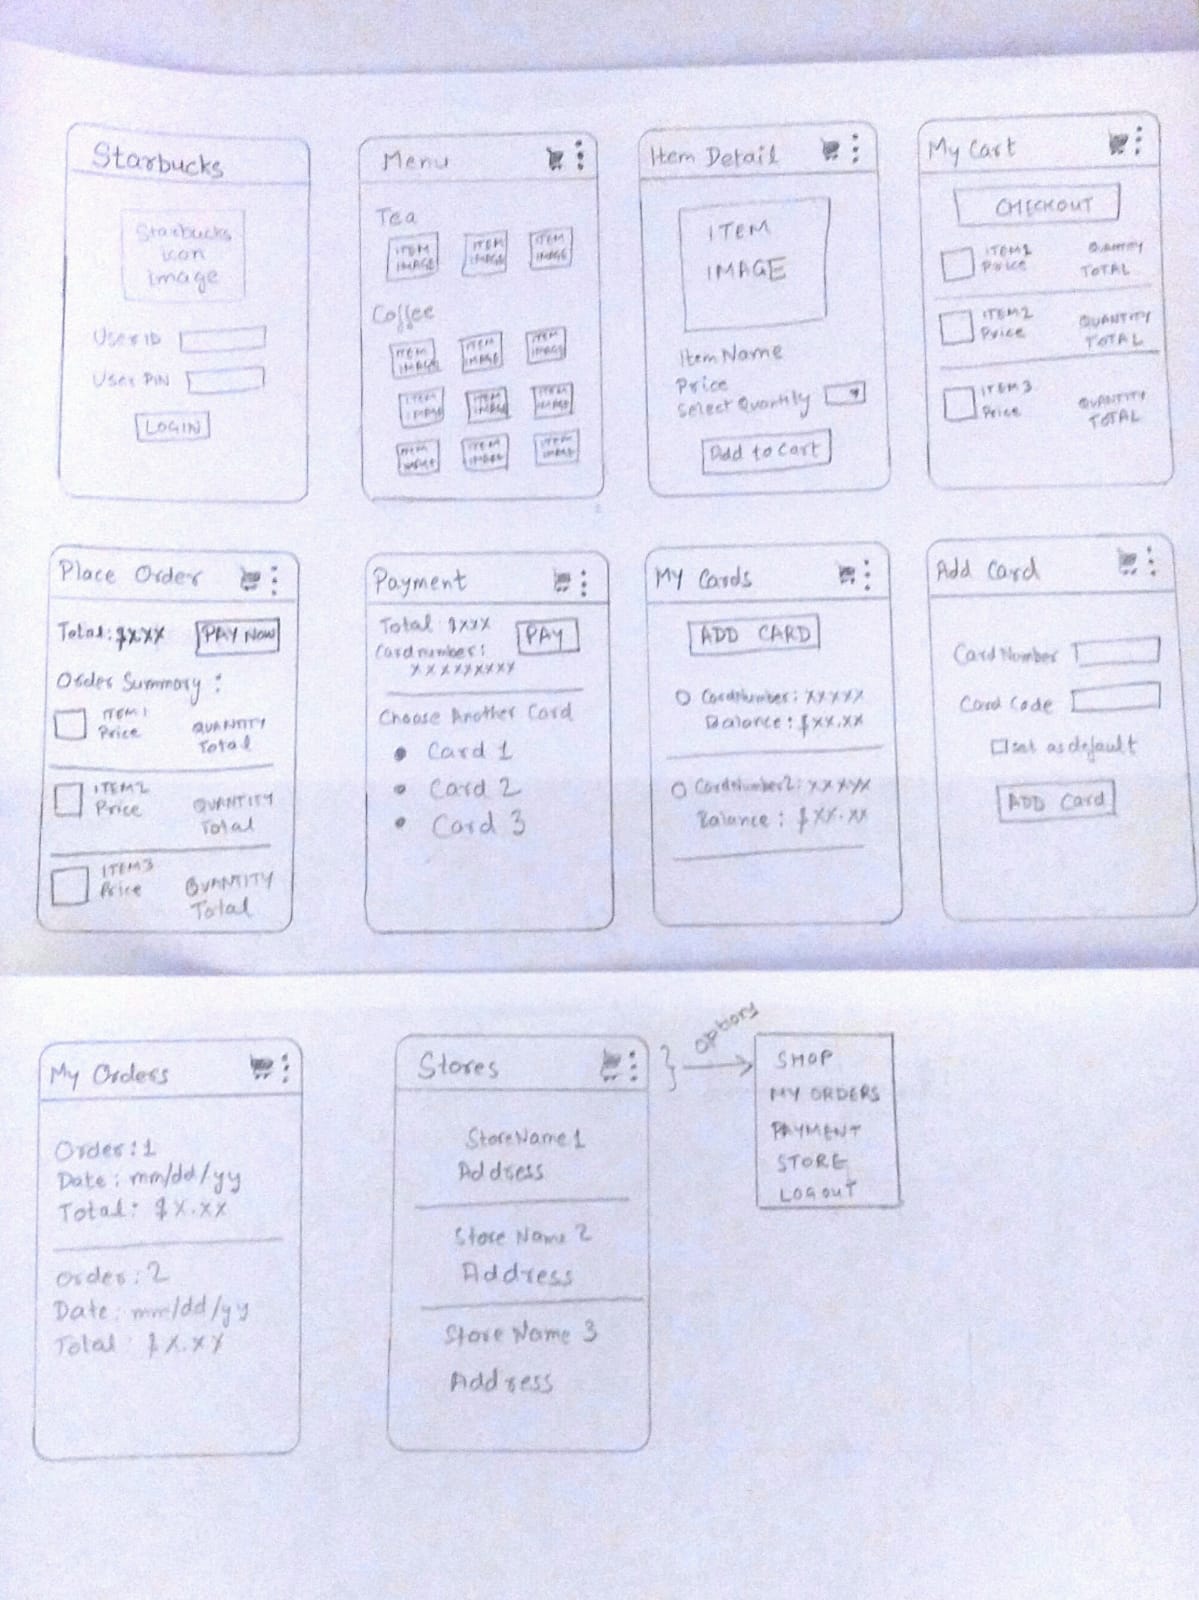 Starbucks
Starbucks
icon
image
User ID
User PIN
LOGIN
Menu
Tea
ITEM IMAGE
ITEM IMAGE
ITEM IMAGE
Coffee
ITEM IMAGE
ITEM IMAGE
ITEM IMAGE
ITEM IMAGE
ITEM IMAGE
ITEM IMAGE
ITEM IMAGE
ITEM IMAGE
ITEM IMAGE
Item Detail
ITEM
IMAGE
Item Name
Price
Select Quantity
Add to Cart
My Cart
CHECKOUT
ITEM1 QUANTITY
Price TOTAL
ITEM2 QUANTITY
Price TOTAL
ITEM3 QUANTITY
Price TOTAL
Place Order
Total: $xxx PAY NOW
Order Summary :
ITEM1 QUANTITY
Price Total
ITEM2 QUANTITY
Price Total
ITEM3 QUANTITY
Price Total
Payment
Total $xxx PAY
Card number:
xxxxxxxxx
Choose Another Card
Card 1
Card 2
Card 3
My Cards
ADD CARD
CardNumber: xxxxx
Balance: $xx.xx
CardNumber2: xxxxx
Balance : $xx.xx
Add Card
Card Number
Card Code
set as default
ADD Card
My Orders
Order:1
Date: mm/dd/yy
Total: $x.xx
Order:2
Date: mm/dd/yy
Total $x.xx
Stores
Store Name 1
Address
Store Name 2
Address
Store Name 3
Address
options
SHOP
MY ORDERS
PAYMENT
STORE
LOGOUT